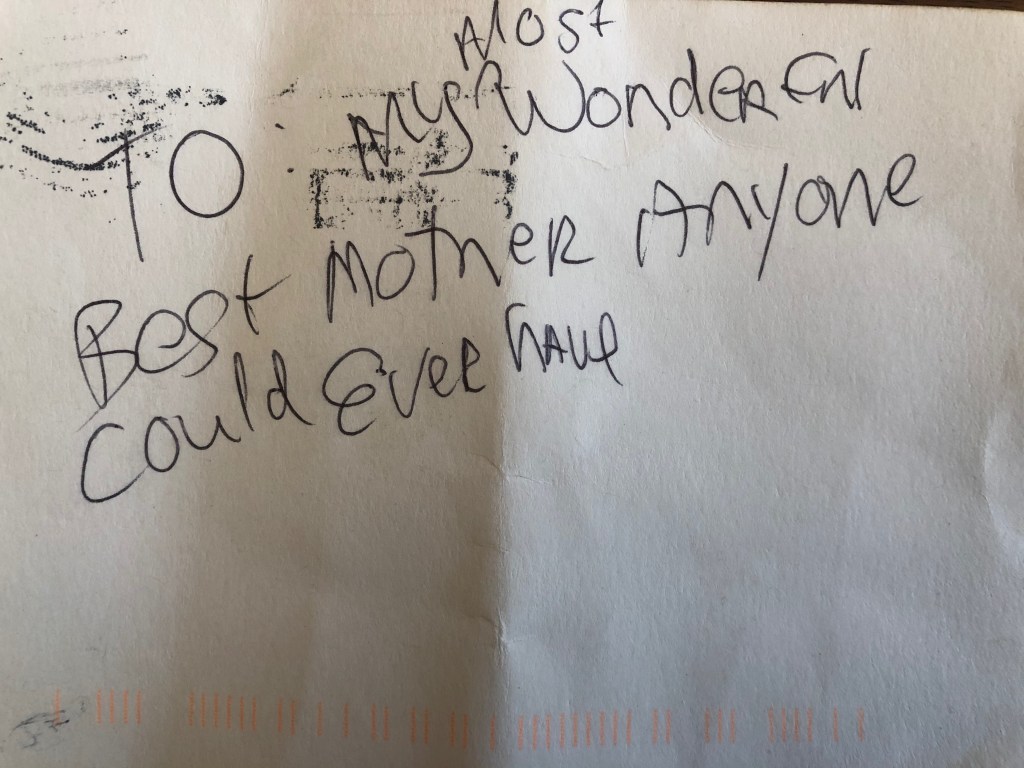 TO: My Most Wonderful
Best Mother Anyone
Could Ever have